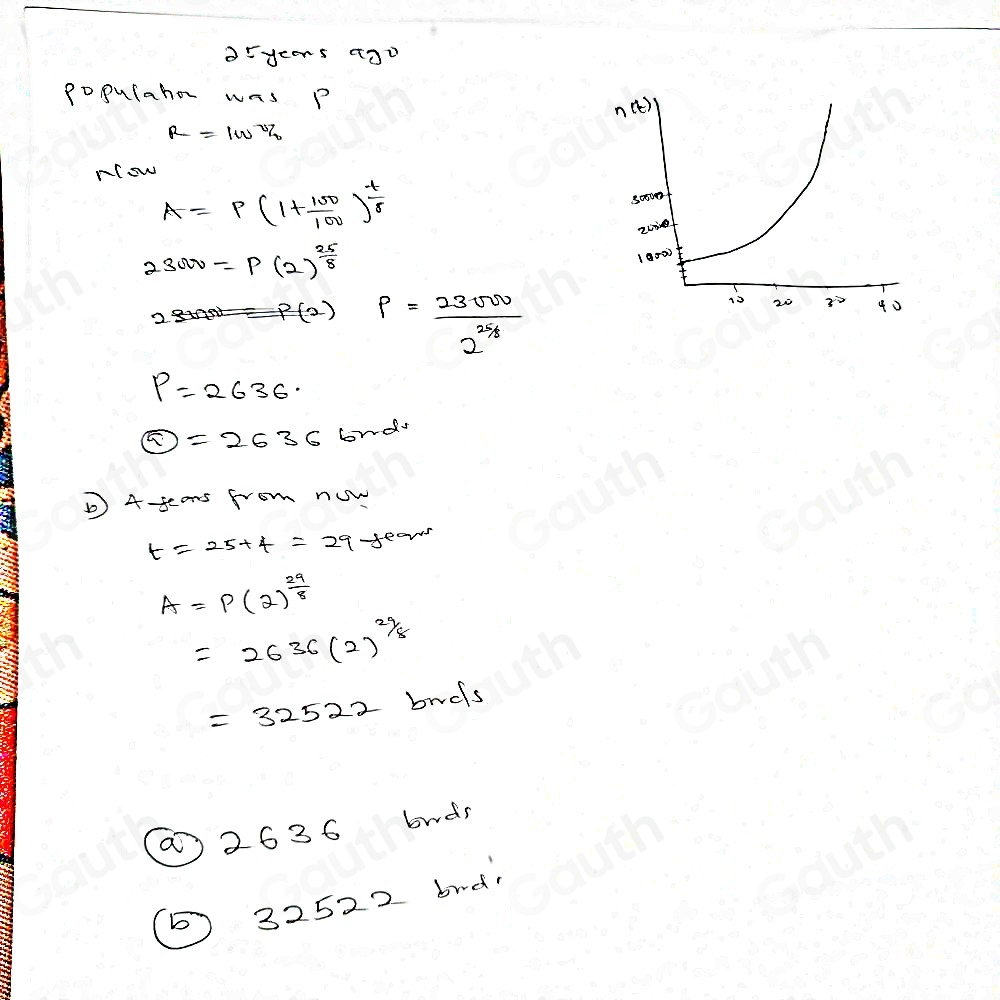 25 years ago
Population was P
R = 100%
Now
A = P(1+100/100)^t/8
23000 = P(2)^25/8
P = 23000/2^25/8
P = 2636.
a = 2636 birds
b) 4 years from now
t = 25+4 = 29 years
A = P(2)^29/8
= 2636(2)^29/8
= 32522 birds
a 2636 birds
b 32522 birds
n(t)
30000
20000
10000
10 20 30 40
Gauth